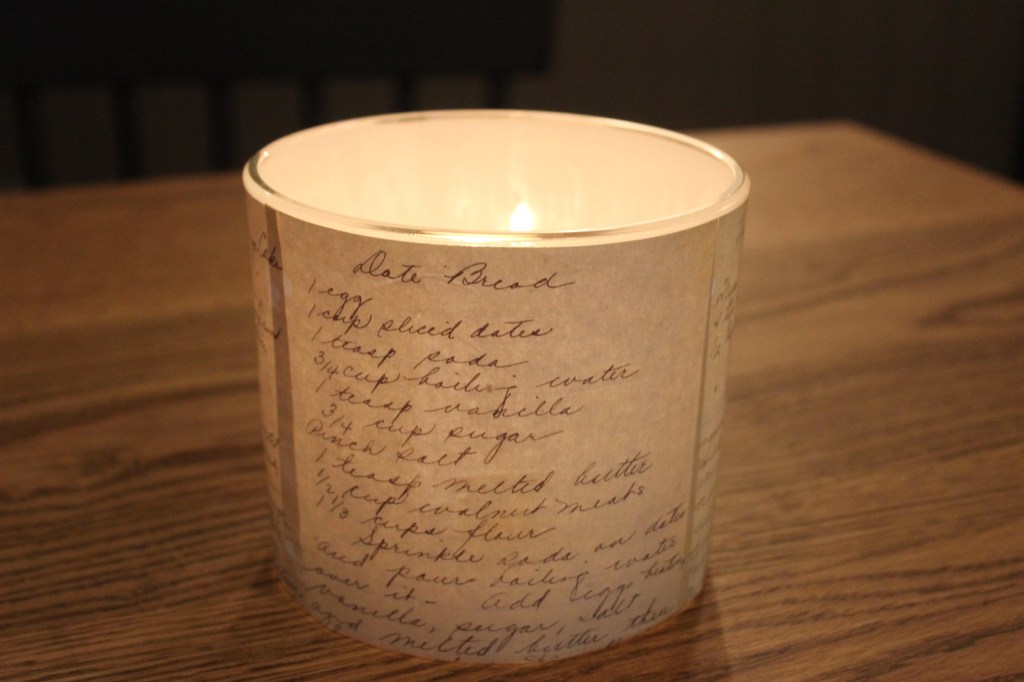 Date Bread
1 egg
1 cup sliced dates
1 teasp soda
3/4 cup boiling water
1 teasp vanilla
3/4 cup sugar
Pinch salt
1 teasp melted butter
1/2 cup walnut meats
1 1/3 cups flour
Sprinkle soda on dates
and pour boiling water
over it - Add egg
vanilla, sugar, salt
add melted butter, then